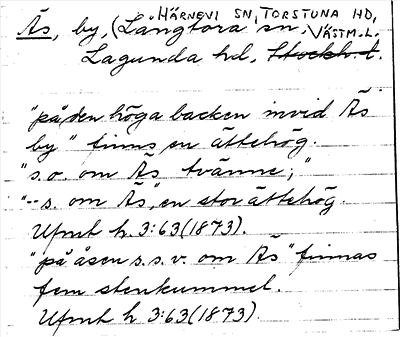 HÄRNEVI SN, TORSTUNA HD,
Äs, by, (Långtora sn, VÄSTM.L.
Lagunda hd, Stockh. l.
"på den höga backen invid Äs
by" finns en ättehög.
"s.o. om Äs tvänne;"
"-- s. om Äs" en stor ättehög.
Ufmt h. 3:63 (1873).
"på åsen s.s.v. om Äs" finnas
fem stenkummel.
Ufmt h 3:63 (1873).